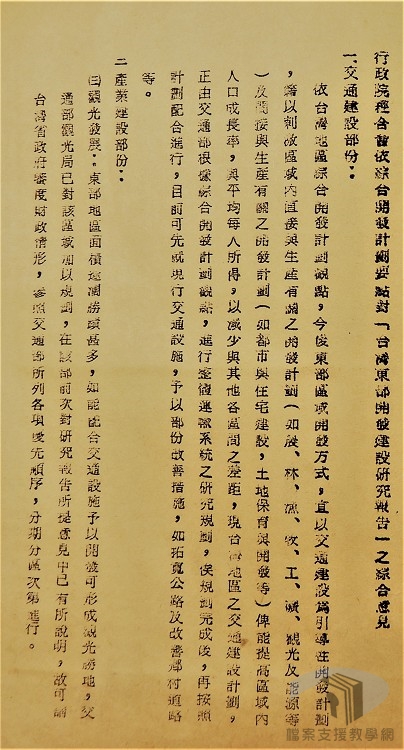 行政院經合會依綜合開發計劃要點對「台灣東部開發建設研究報告」之綜合意見
一、交通建設部份：
依台灣地區綜合開發計劃觀點，今後東部區域開發方式，宜以交通建設為引導性開發計劃
，藉以刺激區域內直接與生產有關之開發計劃（如農、林、漁、牧、工、礦、觀光及能源等
）及間接與生產有關之開發計劃（如都市與住宅建設，土地保育與開發等）俾能提高區域內
人口成長率，與平均每人所得，以減少與其他各區間之差距，現台灣地區之交通建設計劃，
正由交通部根據綜合開發計劃觀點，進行整體運輸系統之研究規劃，俟規劃完成後，再按照
計劃配合進行，目前可先就現行交通設施，予以部份改善措施，如拓寬公路及改善鄉村道路
等。
二、產業建設部份：
㈢觀光發展：東部地區面積遼濶勝蹟甚多，如能配合交通設施予以開發可形成觀光勝地，交
通部觀光局已對該區域加以規劃，在該部前次對研究報告所提意見中已有所說明，故可請
台灣省政府審度財政情形，參照交通部所列各項優先順序，分期分區次第進行。
檔案支援教學網